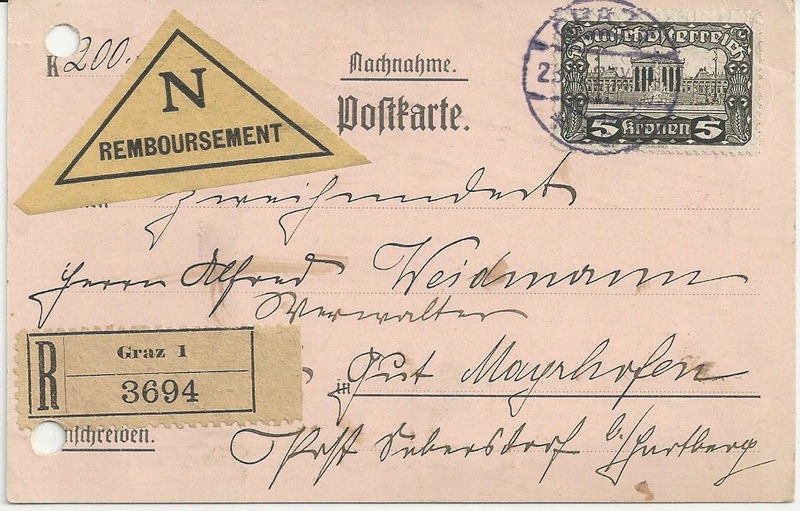 K 200.-
N
REMBOURSEMENT
Nachnahme.
Postkarte.
Deutschösterreich
5 Kronen 5
GRAZ
zweihundert
Herrn Alfred Weidmann
Verwalter
R
Graz 1
3694
in Gut Mayrhofen
nschreiben.
Post Sebersdorf b/Hartberg